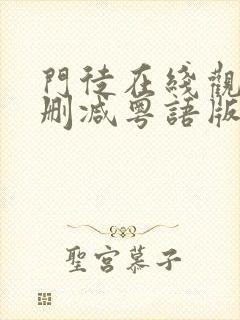 門徒在綫觀
刪减粵語版
聖宮慕子